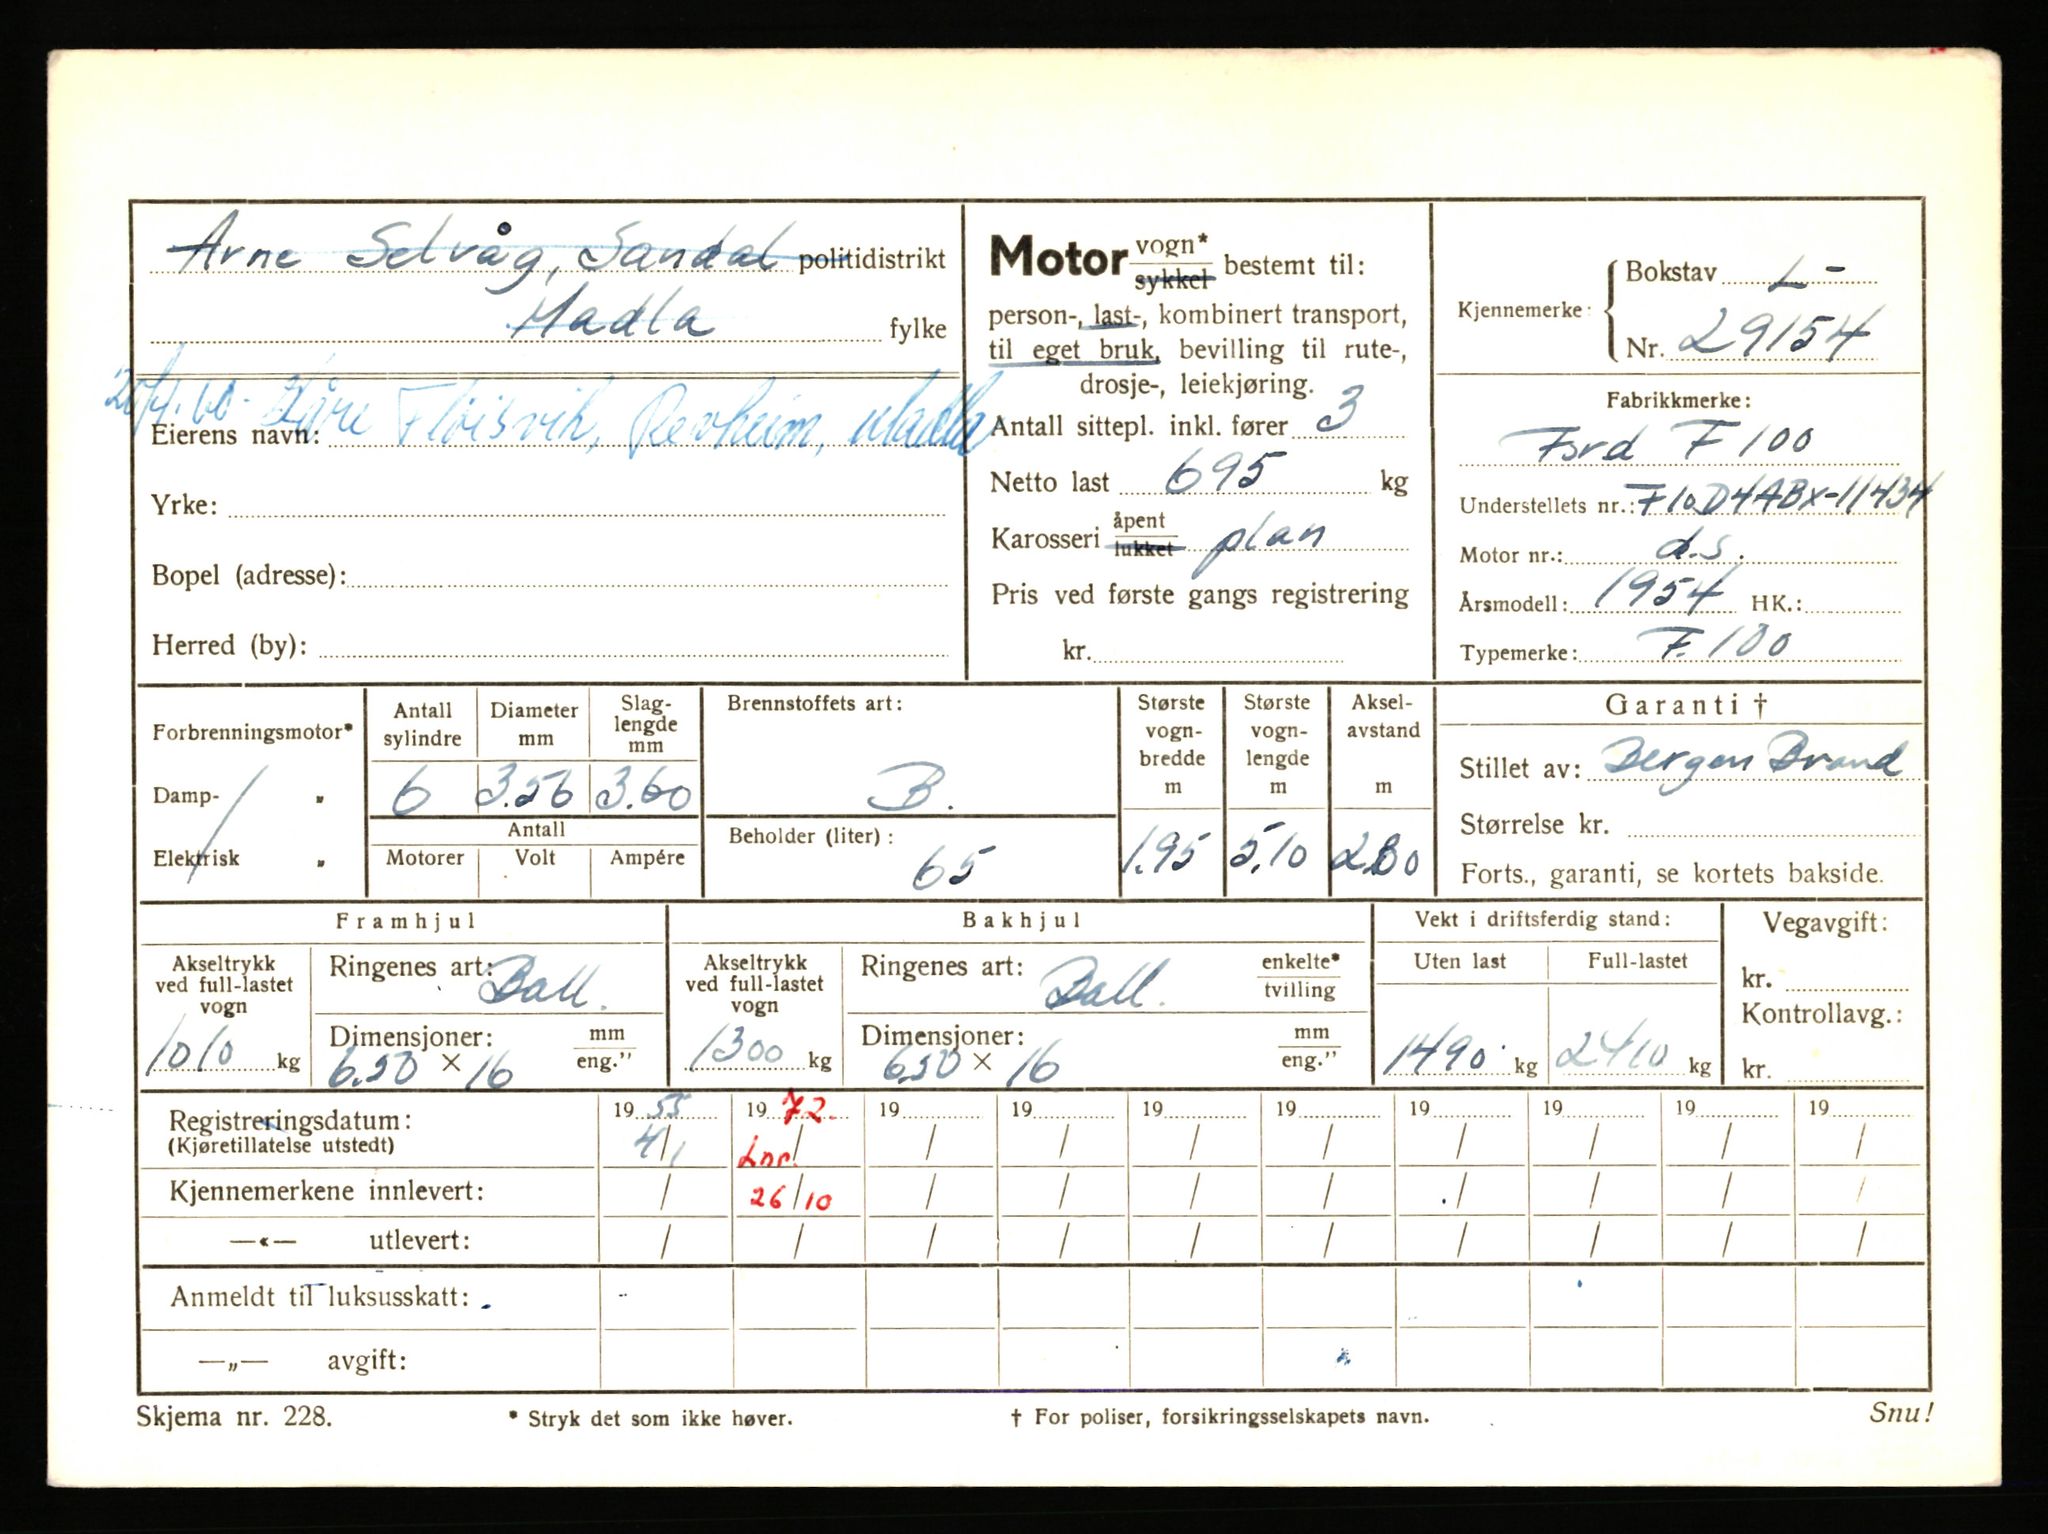 Arne Selvåg, Sandal politidistrikt
Madla fylke
20/4.60. Kåre Fløisvik, Revheim, Madla
Eierens navn:
Yrke:
Bopel (adresse):
Herred (by):
Motor vogn* sykkel bestemt til:
person-, last-, kombinert transport,
til eget bruk, bevilling til rute-,
drosje-, leiekjøring.
Antall sittepl. inkl. fører 3
Netto last 695 kg
Karosseri åpent lukket plan
Pris ved første gangs registrering
kr.
Kjennemerke: Bokstav L-
Nr. 29154
Fabrikkmerke:
Ford F 100
Understellets nr.: F10D4ABX-11434
Motor nr.: d.s.
Årsmodell: 1954 HK.:
Typemerke: F. 100
Forbrenningsmotor*
Damp- „
Elektrisk „
Antall sylindre Diameter mm Slag-lengde mm
6 3.56 3.60
Antall
Motorer Volt Ampére
Brennstoffets art:
B.
Beholder (liter):
65
Største vogn-bredde m
1.95
Største vogn-lengde m
5,10
Aksel-avstand m
2.80
Garanti †
Stillet av: Bergen Brand
Størrelse kr.
Forts., garanti, se kortets bakside.
Framhjul
Akseltrykk ved full-lastet vogn
1010 kg
Ringenes art: Ball.
Dimensjoner: mm eng.”
6.50 × 16
Bakhjul
Akseltrykk ved full-lastet vogn
1300 kg
Ringenes art: Ball. enkelte* tvilling
Dimensjoner: mm eng.”
6.50 × 16
Vekt i driftsferdig stand:
Uten last Full-lastet
1490 kg 2410 kg
Vegavgift:
kr.
Kontrollavg.:
kr.
Registreringsdatum: 19 55 19 72. 19 19 19 19 19 19 19 19
(Kjøretillatelse utstedt) 4/1 Lnr. / / / / / / / / /
Kjennemerkene innlevert: / 26/10 / / / / / / / /
—«— utlevert: / / / / / / / / / /
Anmeldt til luksusskatt:
—„— avgift:
Skjema nr. 228. * Stryk det som ikke høver. † For poliser, forsikringsselskapets navn. Snu!